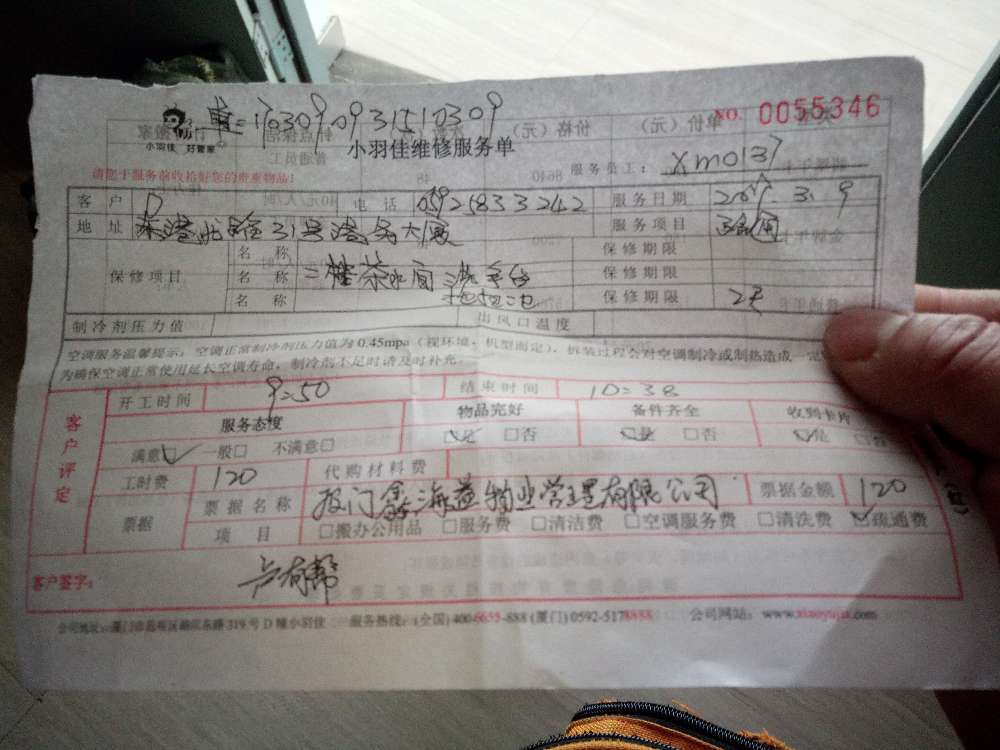 单=17030909315110309
NO. 0055346
小羽佳 好管家
小羽佳维修服务单
请您于服务前收拾好您的贵重物品!
服务员工: XM0137
客户 电话 05925833242 服务日期 3.9
地址 东港北路31号港务大厦 服务项目
保修项目 名称 保修期限
名称 二楼茶水间洗手台 保修期限
名称 保修期限 2天
制冷剂压力值 出风口温度
空调服务温馨提示: 空调正常制冷剂压力值为0.45mpa (视环境、机型而定), 拆装过程会对空调制冷或制热造成一定
为确保空调正常使用延长空调寿命, 制冷剂不足时请及时补充.
客户评定
开工时间 9:50 结束时间 10:38
服务态度 物品完好 备件齐全 收到卡片
满意□✓ 一般□ 不满意□ ☑是 □否 ☑是 □否 ☑是 □否
工时费 120 代购材料费
票据 票据名称 物业管理有限公司 票据金额 120
项目 □搬办公用品 □服务费 □清洁费 □空调服务费 □清洗费 ☑疏通费
客户签字:
公司地址: 厦门市 东路319号D幢小羽佳 服务热线: (全国) 400-6655-888 (厦门) 0592-5178888 公司网站: www.xiaoyujia.com